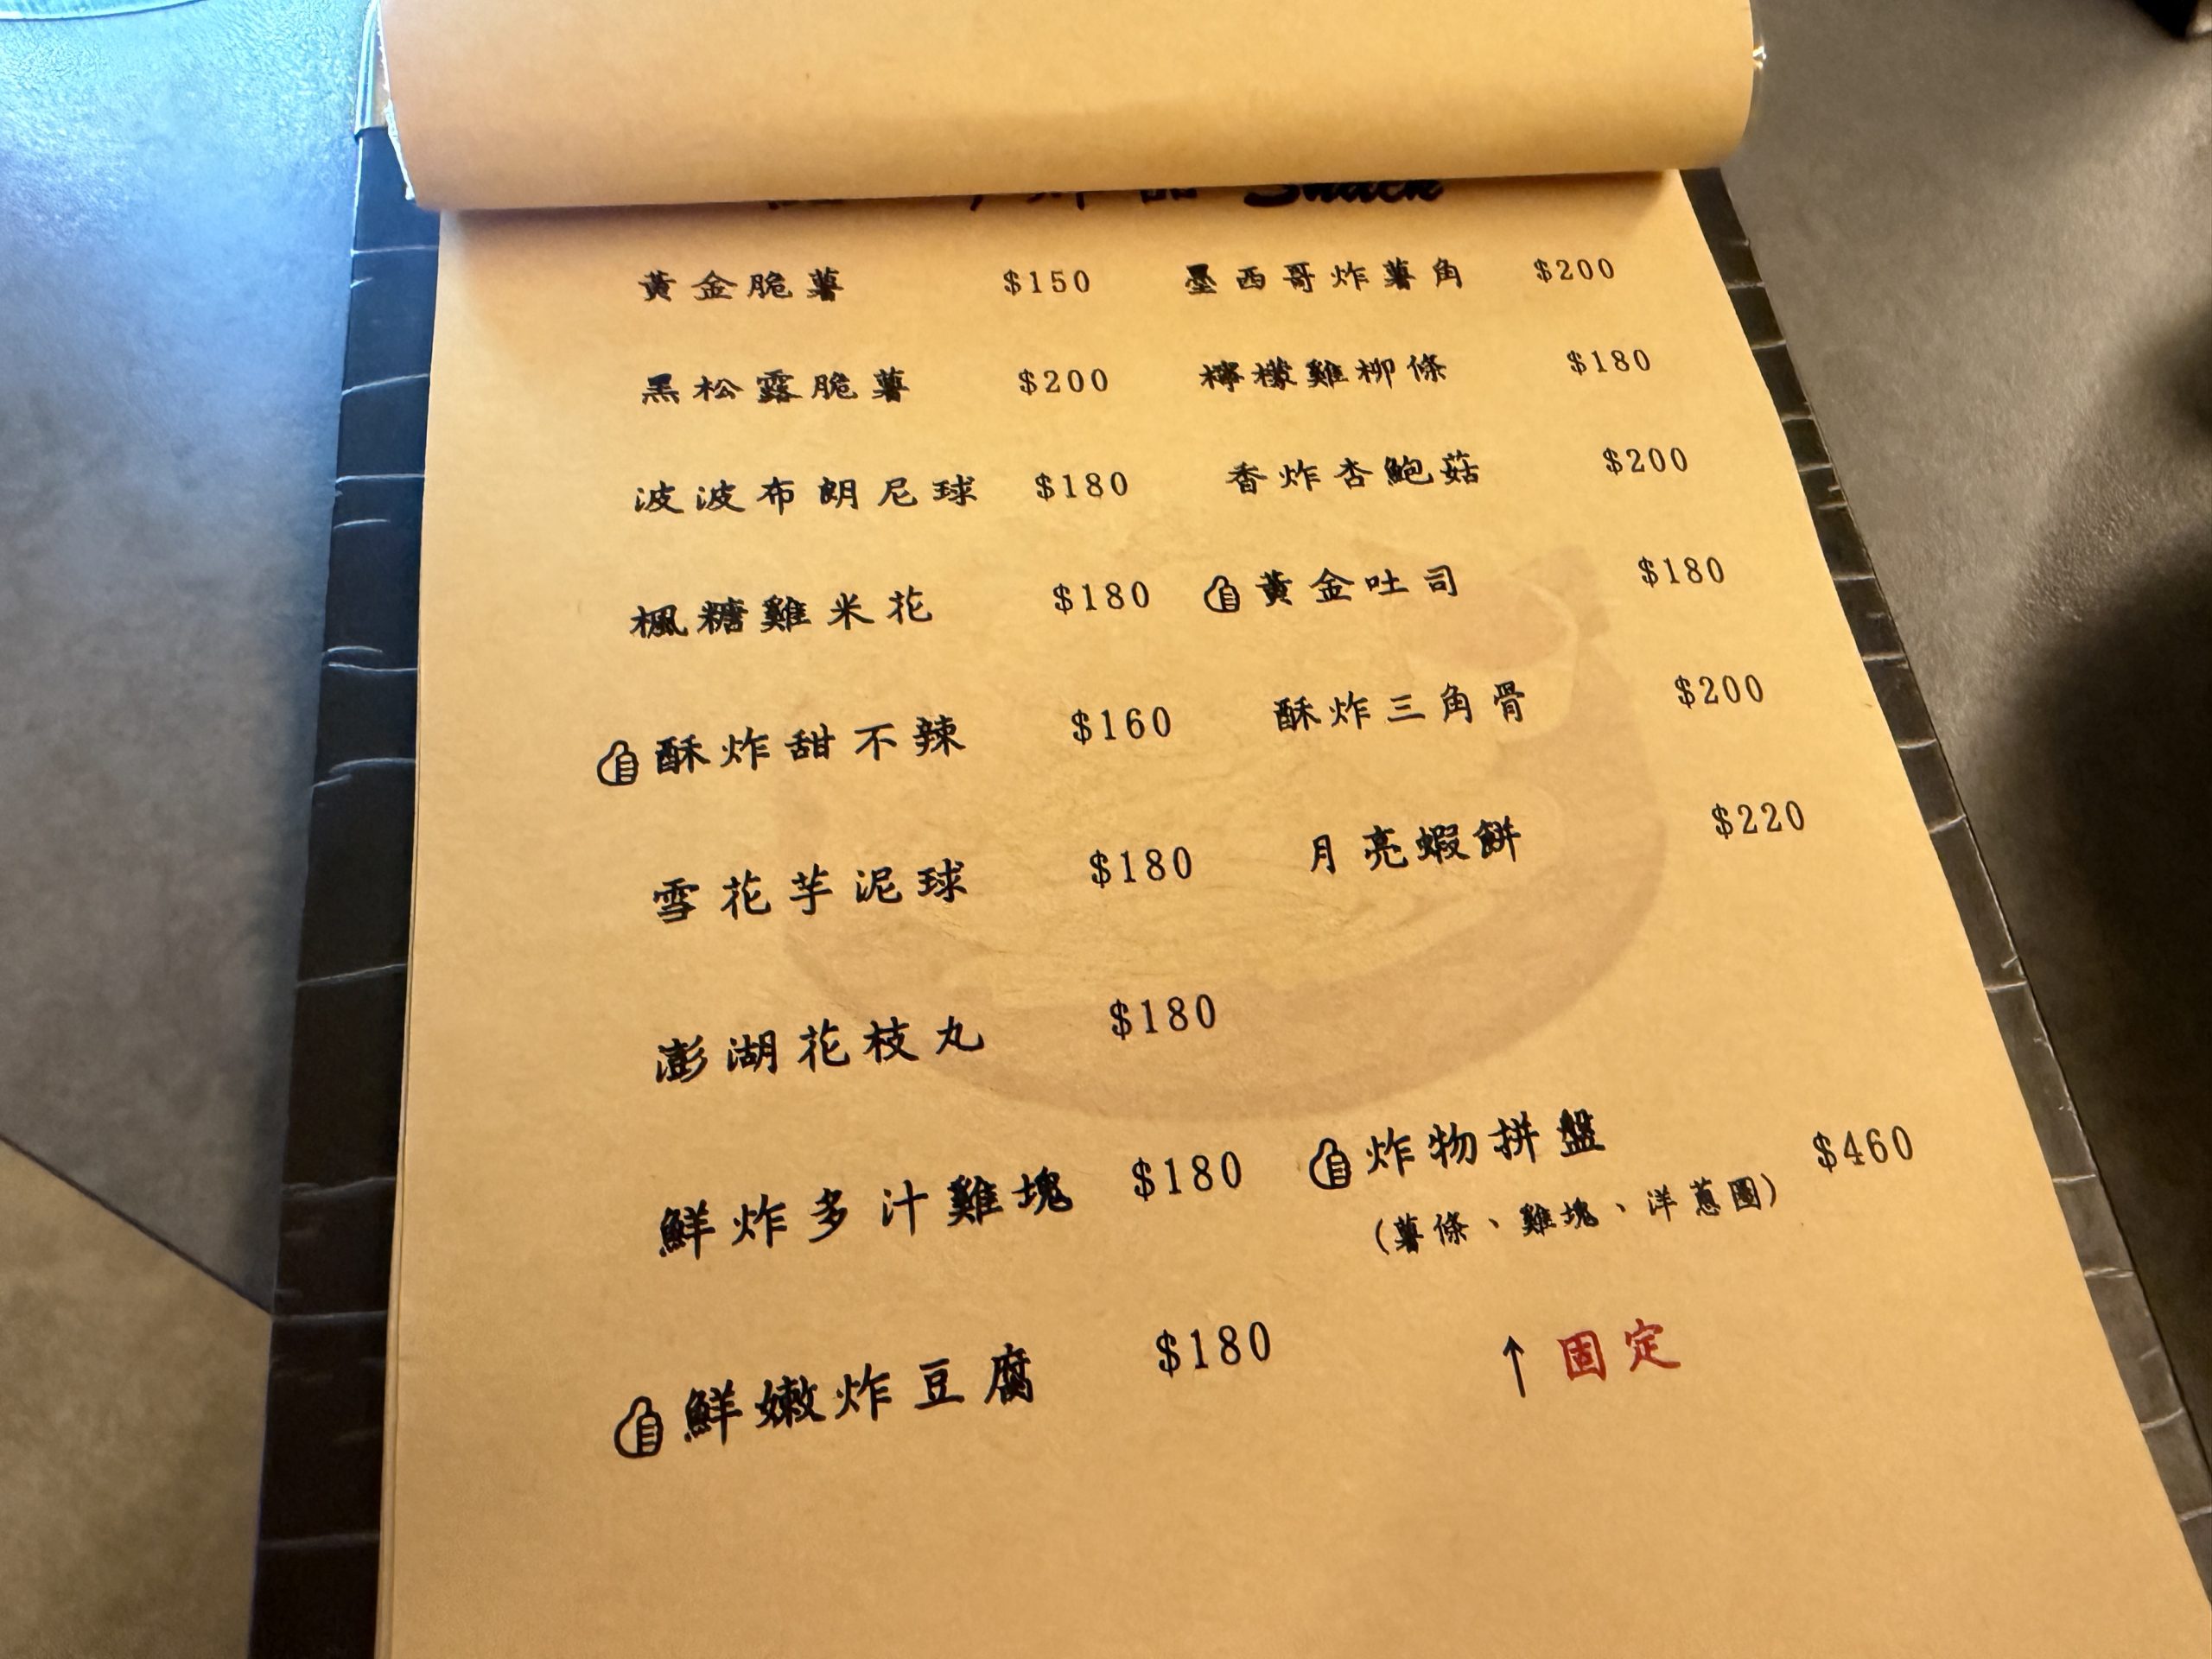 炸品 Snack
黃金脆薯 $150 墨西哥炸薯角 $200
黑松露脆薯 $200 檸檬雞柳條 $180
波波布朗尼球 $180 香炸杏鮑菇 $200
楓糖雞米花 $180 黃金吐司 $180
酥炸甜不辣 $160 酥炸三角骨 $200
雪花芋泥球 $180 月亮蝦餅 $220
澎湖花枝丸 $180
鮮炸多汁雞塊 $180 炸物拼盤 $460
(薯條、雞塊、洋蔥圈)
鮮嫩炸豆腐 $180 ↑固定